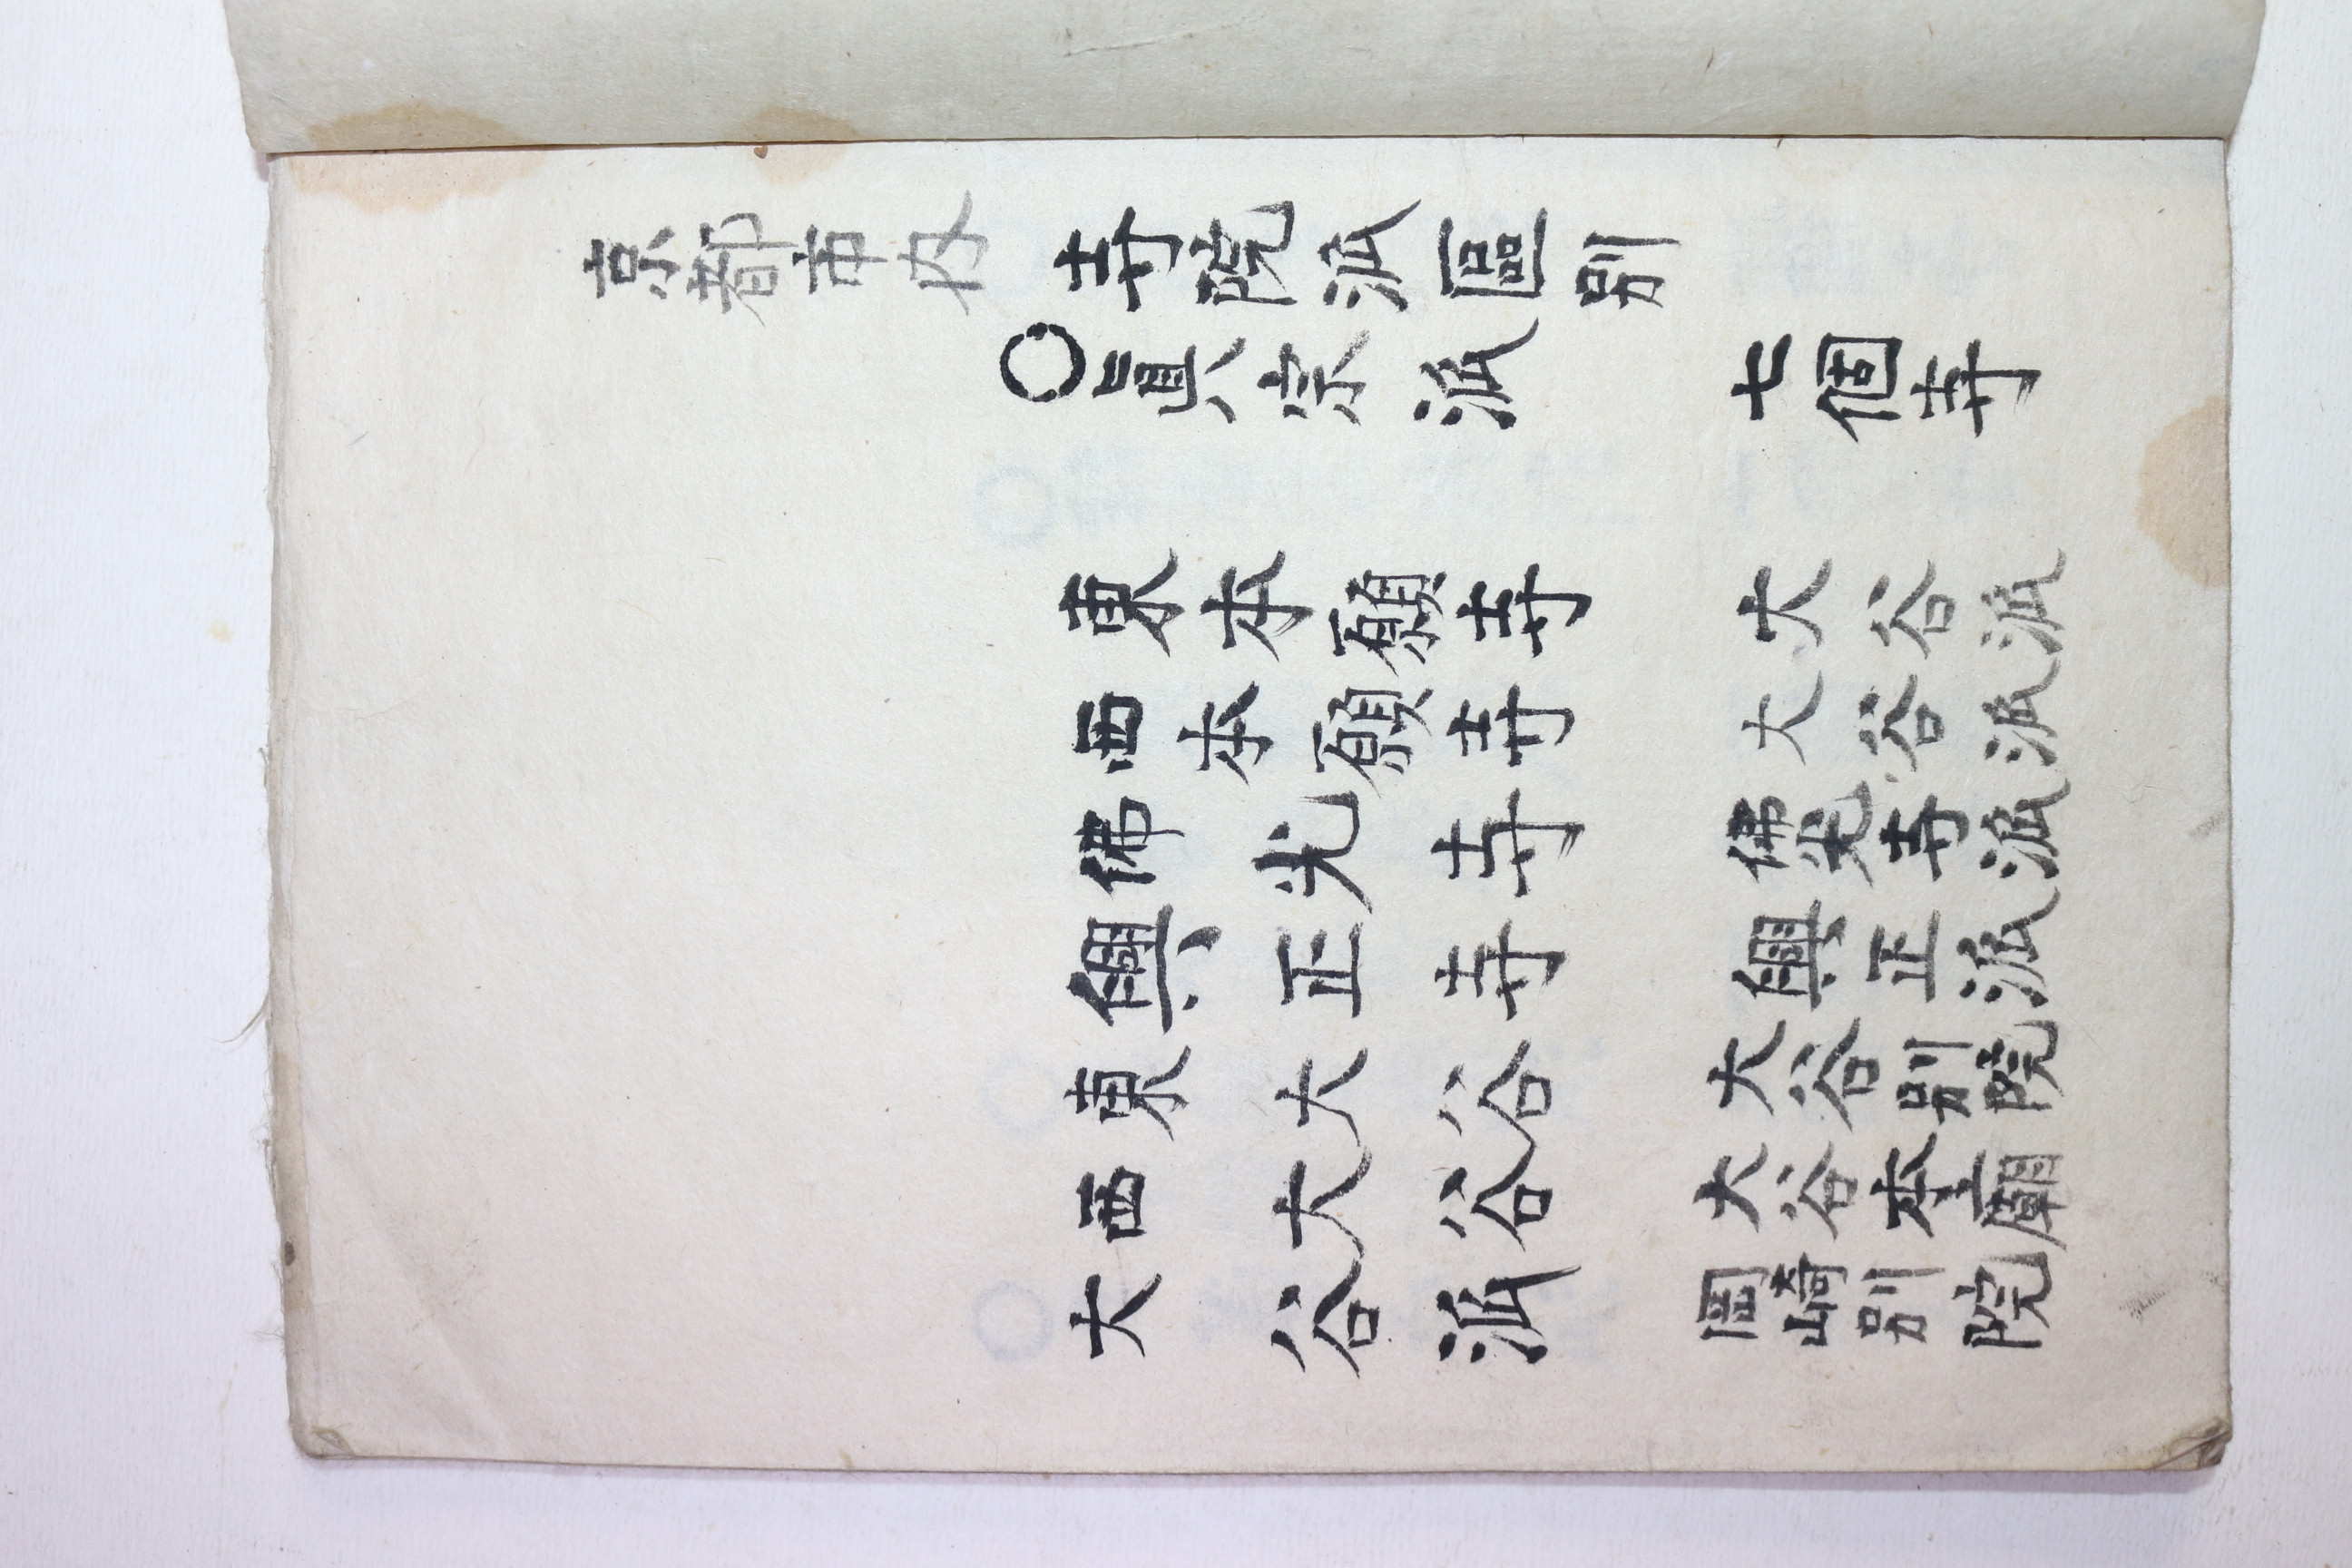 京都市内寺院派區別
○眞宗派 七個寺
東本願寺 大谷派
西本願寺 大谷派
佛光寺 佛光寺派
興正寺 興正派
東大谷 大谷別院
西大谷 大谷本廟
大谷派 岡崎別院